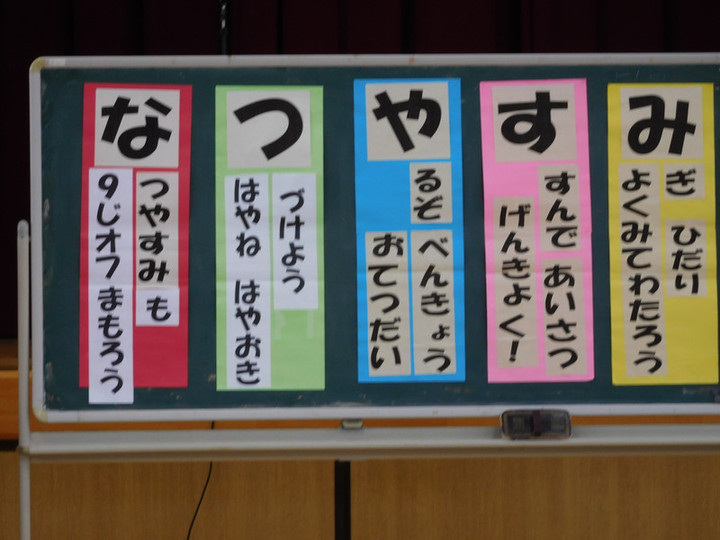 な
つやすみ も
9じオフ まもろう
つ
づけよう
はやね はやおき
や
るぞ べんきょう
おてつだい
す
すんで あいさつ
げんきよく!
み
ぎ ひだり
よくみてわたろう